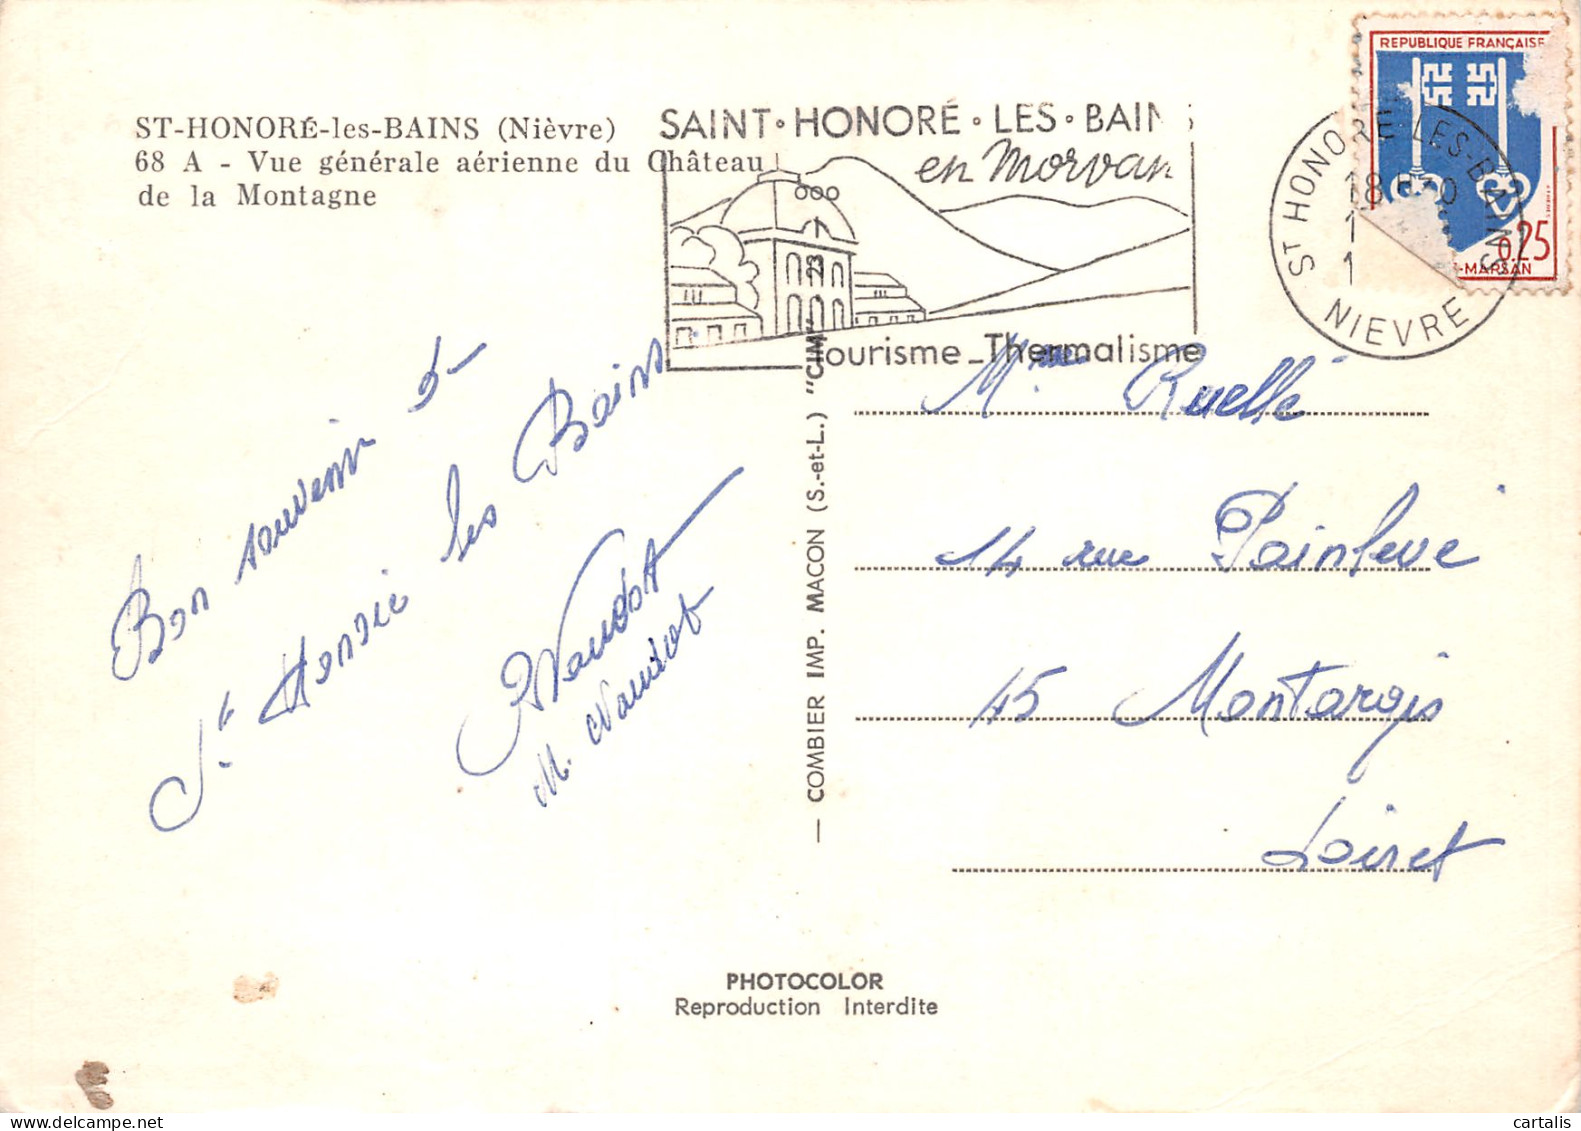 ST-HONORÉ-les-BAINS (Nièvre)
68 A - Vue générale aérienne du Château
de la Montagne
SAINT·HONORÉ·LES·BAINS
en Morvan
Tourisme_Thermalisme
REPUBLIQUE FRANÇAISE
0.25
-MARSAN
ST HONORE-LES-BAINS
18 H30
1
1
NIEVRE
Bon souvenir de
St Honoré les Bains
M.
— COMBIER IMP. MACON (S.-et-L.) "CIM"
Mme Ruellé
14 rue Painlevé
45 Montargis
Loiret
PHOTOCOLOR
Reproduction Interdite
cartalis
www.delcampe.net